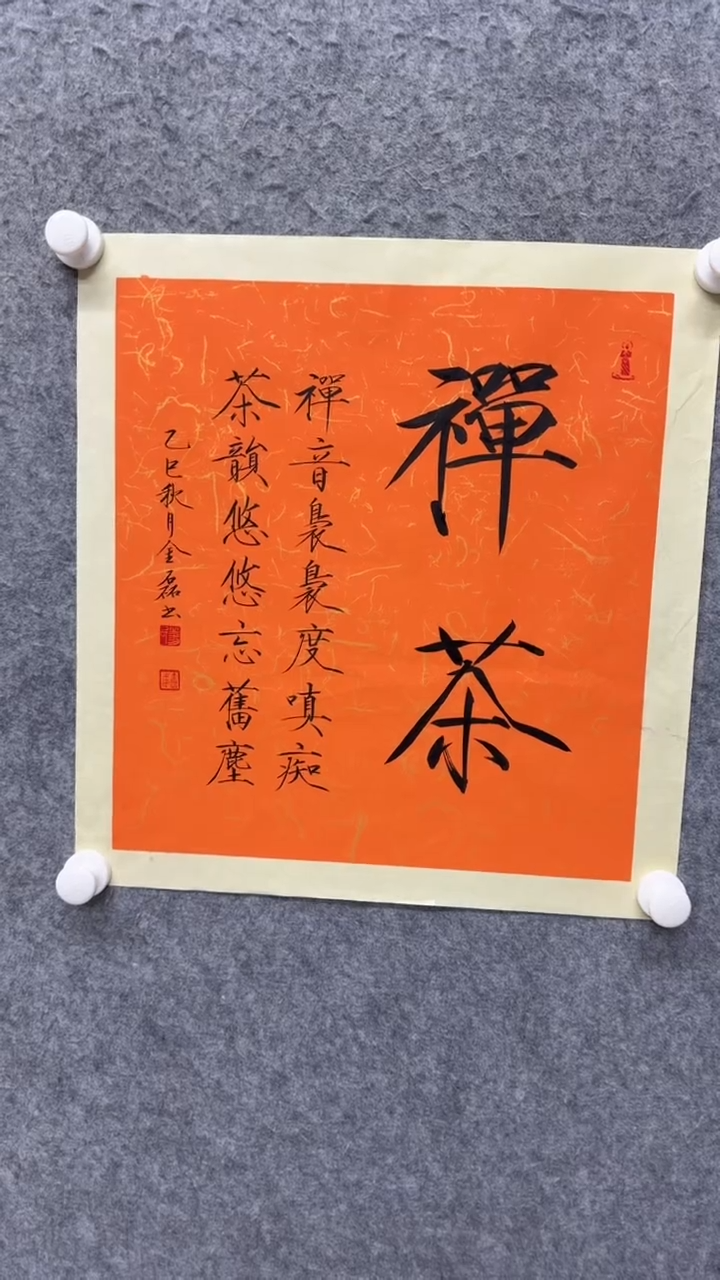 禪茶
禪音裊裊度嗔痴
茶韻悠悠忘舊塵
乙巳秋月金磊书